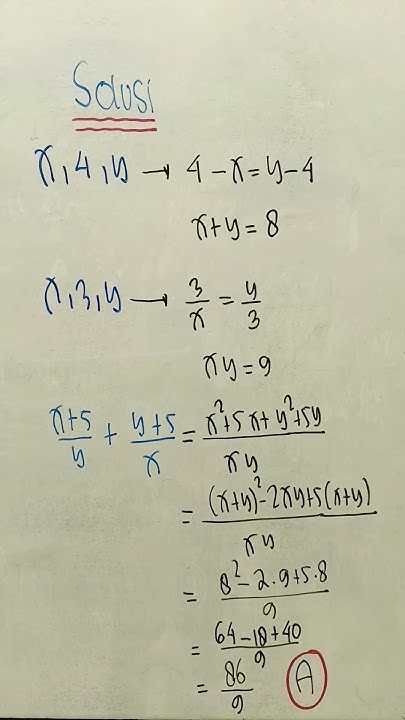 Solusi
x, 4, y → 4 - x = y - 4
x + y = 8
x, 3, y → 3/x = y/3
xy = 9
(x+5)/y + (y+5)/x = (x²+5x+y²+5y)/(xy)
= ((x+y)²-2xy+5(x+y))/(xy)
= (8²-2.9+5.8)/9
= (64-18+40)/9
= 86/9 A